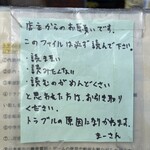 店主からのお願いです。
このファイルは必ず読んで下さい。
・読まない
・読みたくない
・読むのがめんどくさい
と思われた方は、お引き取り
ください。
トラブルの原因になりかねます。
まーさん